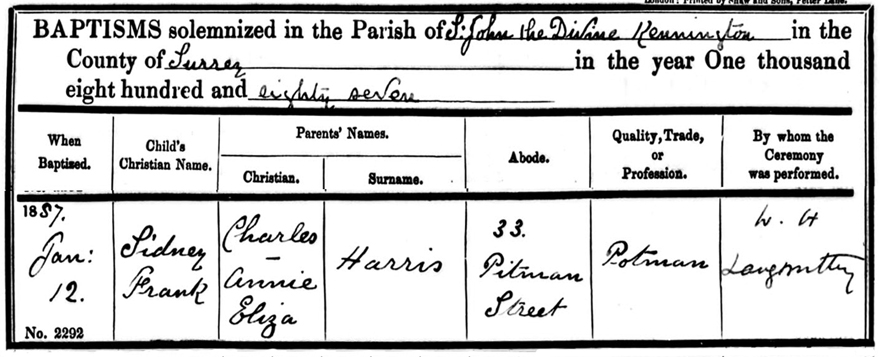 London: Printed by Shaw and Sons, Fetter Lane.
BAPTISMS solemnized in the Parish of St. John the Divine Kennington in the
County of Surrey in the year One thousand
eight hundred and eighty seven
When
Baptized.
Child's
Christian Name.
Parents' Names.
Christian.
Surname.
Abode.
Quality, Trade,
or
Profession.
By whom the
Ceremony
was performed.
1887.
Jan:
12.
No. 2292
Sidney
Frank
Charles
–
Annie
Eliza
Harris
33.
Pitman
Street
Potman
W. H